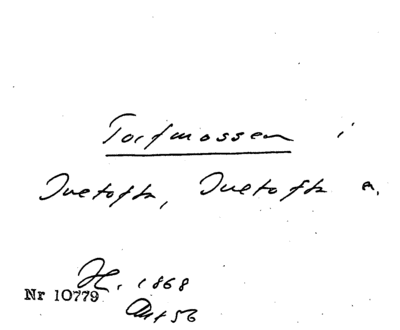 Torfmossen i
Ivetofta, Ivetofta s.
1868
Nr 10779
56